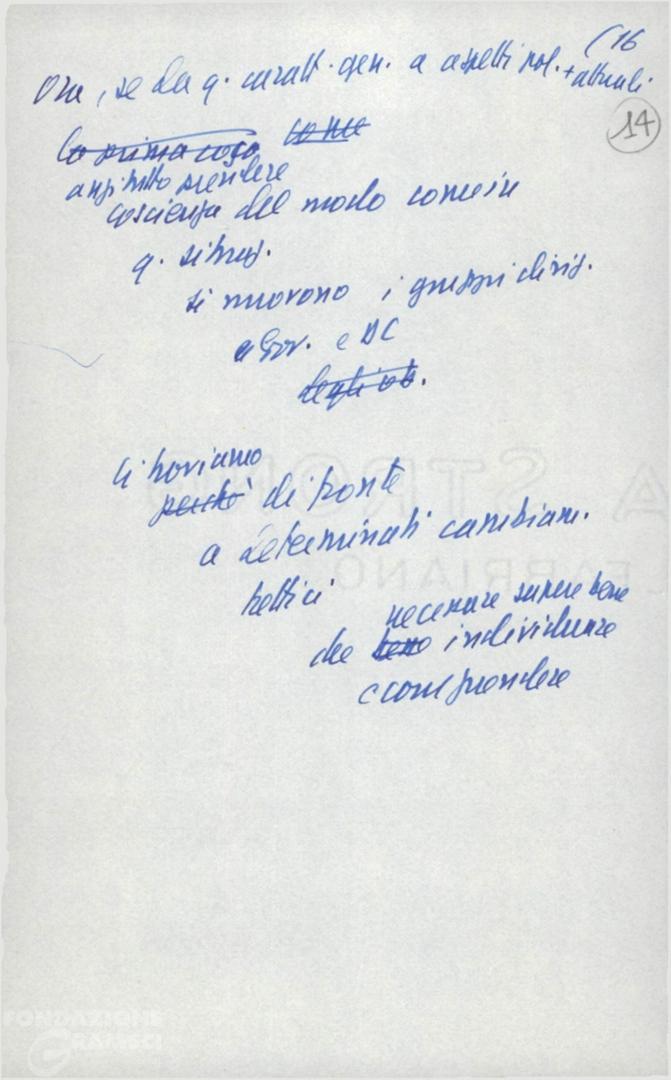 (16
Ora, se da q. caratt. gen. a aspetti pol. + attuali
14
la prima cosa come
anzitutto prendere
coscienza del modo come in
q. situaz.
si muovono i gruppi dirig.
e DC
degli
Ci troviamo
perché di fronte
a determinati cambiam.
tattici
necessare sapere bene
che bene individuare
e comprendere
A STRONG
FABRIANO
FONDAZIONE
GRAMSCI